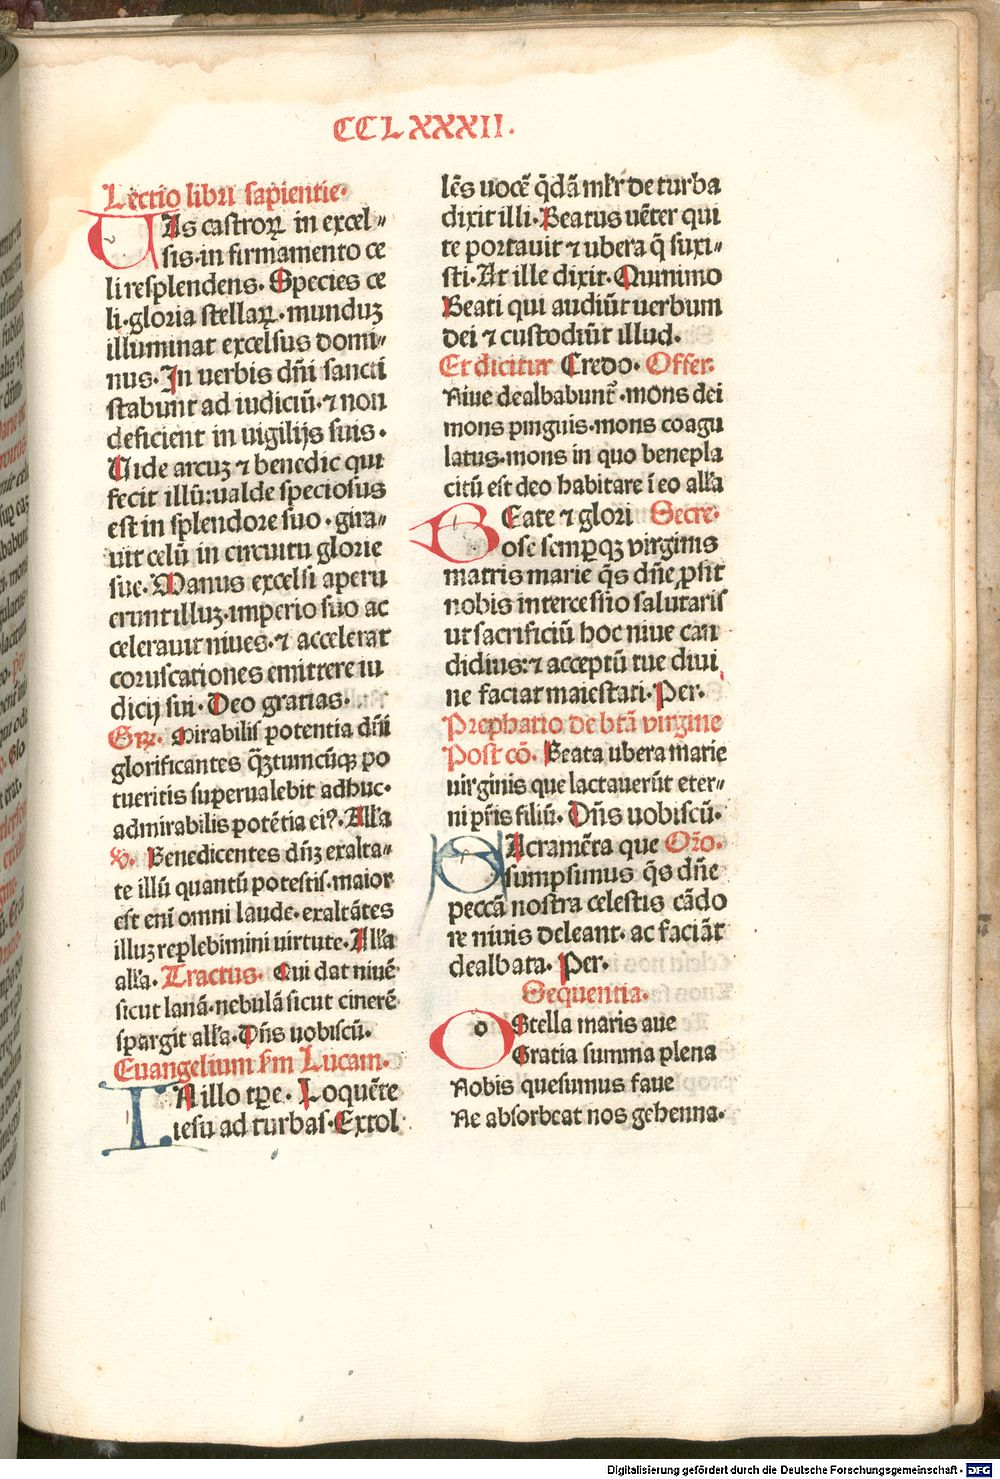 CCLXXXII.
Lectio libri sapientie.
VAs castroꝝ in excel⸗
sis.in firmamento ce
li resplendens. Species ce
li.gloria stellaꝝ.munduꝫ
illuminat excelsus domi⸗
nus.In verbis dn̄i sancti
stabunt ad iudiciū.⁊ non
deficient in vigilijs suis.
Uide arcuꝫ ⁊ benedic qui
fecit illū:ualde speciosus
est in splendore suo.gira⸗
uit celū in circuitu glorie
sue.Manus excelsi aperu
erunt illuꝫ.imperio suo ac
celerauit niues.⁊ accelerat
coruscationes emittere iu
dicij sui.Deo gratias.
Gꝛ. Mirabilis potentia dn̄i
glorificantes qꝫtumcūqꝫ po
tueritis superualebit adhuc.
admirabilis potētia eiꝰ.Alła
℣. Benedicentes dn̄ꝫ exalta⸗
te illū quantū potestis.maior
est enī omni laude.exaltātes
illuꝫ replebimini uirtute.Alła
alła. Tractus. Qui dat niuē
sicut lanā.nebulā sicut cinerē
spargit alła.Dn̄s uobiscū.
Euangelium sm̄ Lucam.
IN illo tꝑe. Loquēte
iesu ad turbas.Extol
lēs uocē q̄dā młr de turba
dixit illi.Beatus uēter qui
te portauit ⁊ ubera q̄ suxi⸗
sti.At ille dixit.Quinimo
Beati qui audiūt uerbum
dei ⁊ custodiūt illud.
Et dicitur Credo. Offer.
Niue dealbabunt᷑.mons dei
mons pinguis.mons coagu
latus.mons in quo benepla
citū est deo habitare ī eo alła
BEate ⁊ glori Secre.
ose semꝑqꝫ virginis
matris marie q̄s dn̄e ꝓsit
nobis intercessio salutaris
ut sacrificiū hoc niue can
didius:⁊ acceptū tue diui
ne faciat maiestati.Per.
Prephatio de btā virgine
Post cō. Beata ubera marie
uirginis que lactauerūt eter⸗
ni pr̄is filiū. Dn̄s uobiscū.
SAcramēta que Or̄o.
sumpsimus q̄s dn̄e
peccā nostra celestis cādo
re niuis deleant. ac faciāt
dealbata. Per.
Sequentia.
O o Stella maris aue
Gratia summa plena
Nobis quesumus faue
Ne absorbeat nos gehenna.
Digitalisierung gefördert durch die Deutsche Forschungsgemeinschaft - DFG